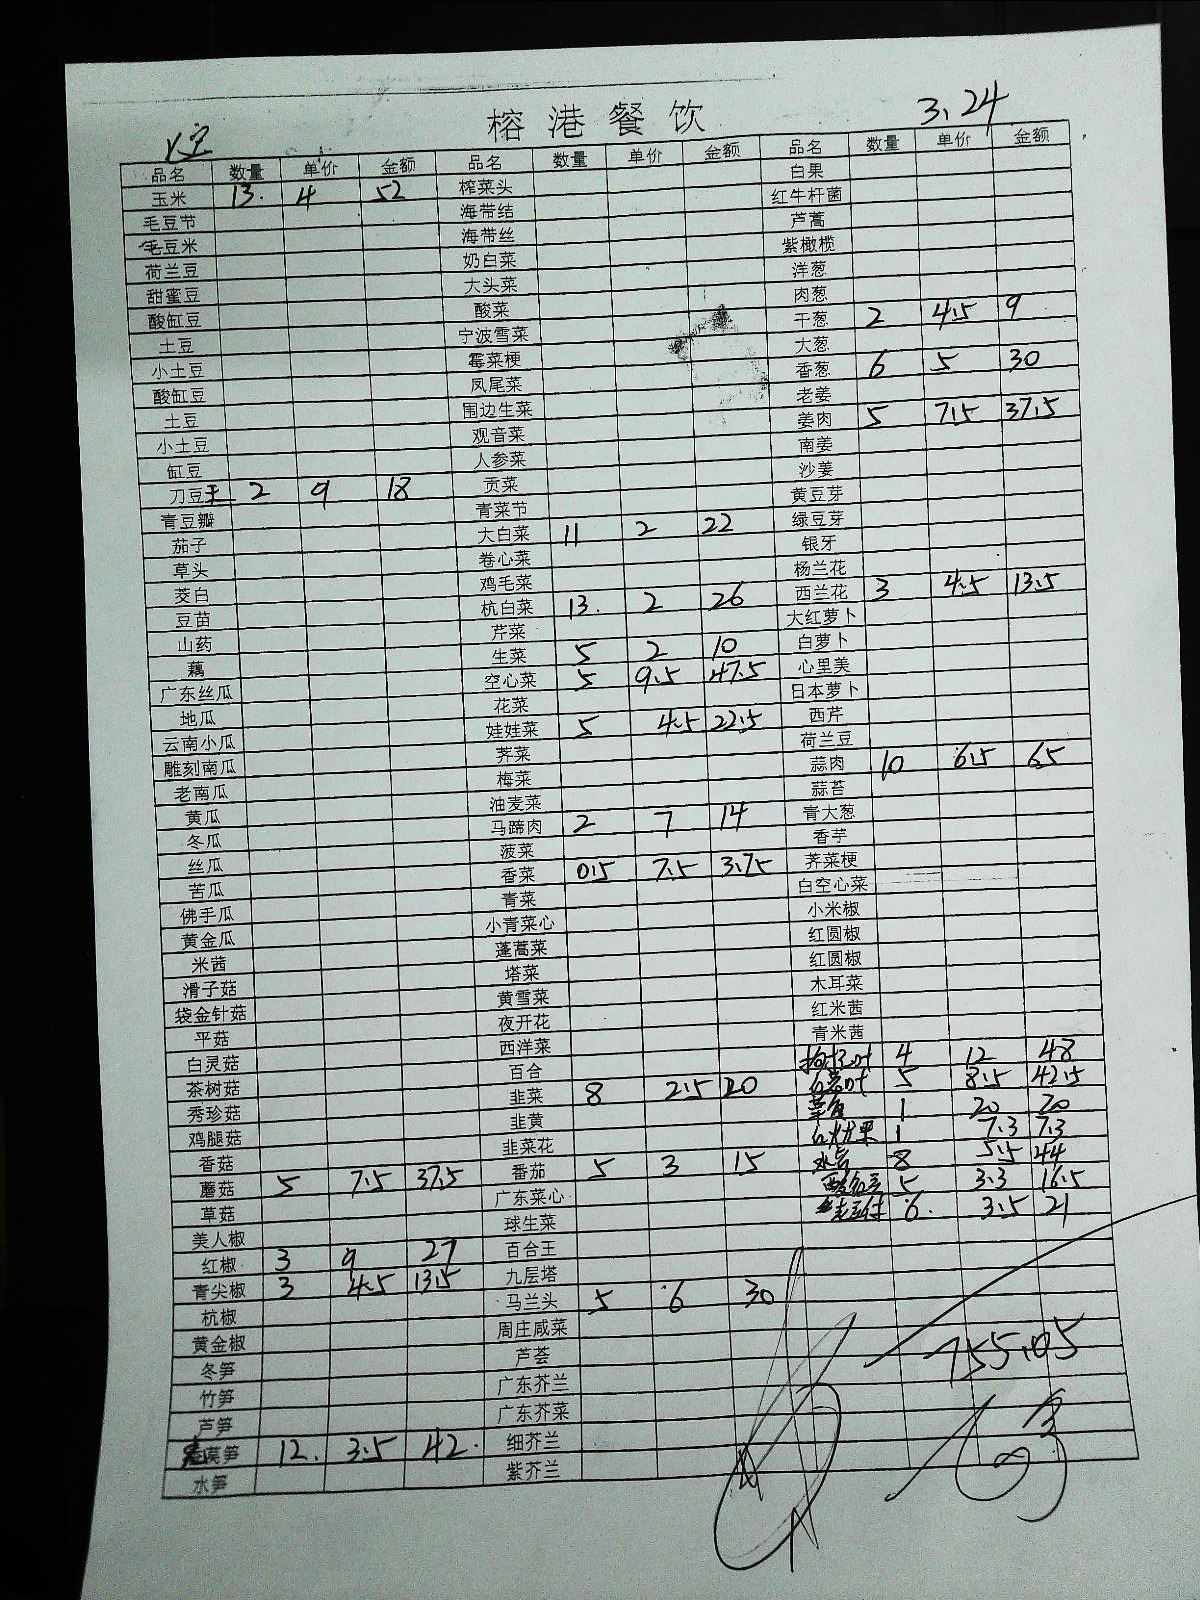 榕港餐饮 3.24
品名 数量 单价 金额 品名 数量 单价 金额 品名 数量 单价 金额
玉米 13. 4 52 榨菜头 白果
毛豆节 海带结 红牛杆菌
毛豆米 海带丝 芦蒿
荷兰豆 奶白菜 紫橄榄
甜蜜豆 大头菜 洋葱
酸缸豆 酸菜 肉葱
土豆 宁波雪菜 干葱 2 4.5 9
小土豆 霉菜梗 大葱
酸缸豆 凤尾菜 香葱 6 5 30
土豆 围边生菜 老姜
小土豆 观音菜 姜肉 5 7.5 37.5
缸豆 人参菜 南姜
刀豆 2 9 18 贡菜 沙姜
青豆瓣 青菜节 黄豆芽
茄子 大白菜 11 2 22 绿豆芽
草头 卷心菜 银牙
茭白 鸡毛菜 杨兰花
豆苗 杭白菜 13. 2 26 西兰花 3 4.5 13.5
山药 芹菜 大红萝卜
藕 生菜 5 2 10 白萝卜
广东丝瓜 空心菜 5 9.5 47.5 心里美
地瓜 花菜 日本萝卜
云南小瓜 娃娃菜 5 4.5 22.5 西芹
雕刻南瓜 荠菜 荷兰豆
老南瓜 梅菜 蒜肉 10 6.5 65
黄瓜 油麦菜 蒜苔
冬瓜 马蹄肉 2 7 14 青大葱
丝瓜 菠菜 香芋
苦瓜 香菜 0.5 7.5 3.75 荠菜梗
佛手瓜 青菜 白空心菜
黄金瓜 小青菜心 小米椒
米茜 蓬蒿菜 红圆椒
滑子菇 塔菜 红圆椒
袋金针菇 黄雪菜 木耳菜
平菇 夜开花 红米茜
白灵菇 西洋菜 青米茜
茶树菇 百合 4 12 48
秀珍菇 韭菜 8 2.5 20 5 8.5 42.5
鸡腿菇 韭黄 1 20 20
香菇 韭菜花 1 7.3 7.3
蘑菇 5 7.5 37.5 番茄 5 3 15 8 5.5 44
草菇 广东菜心 5 3.3 16.5
美人椒 球生菜 6. 3.5 21
红椒 3 9 27 百合王
青尖椒 3 4.5 13.5 九层塔
杭椒 马兰头 5 6 30
黄金椒 周庄咸菜
冬笋 芦荟 755.05
竹笋 广东芥兰
芦笋 广东芥菜
莴笋 12. 3.5 42. 细芥兰
水笋 紫芥兰